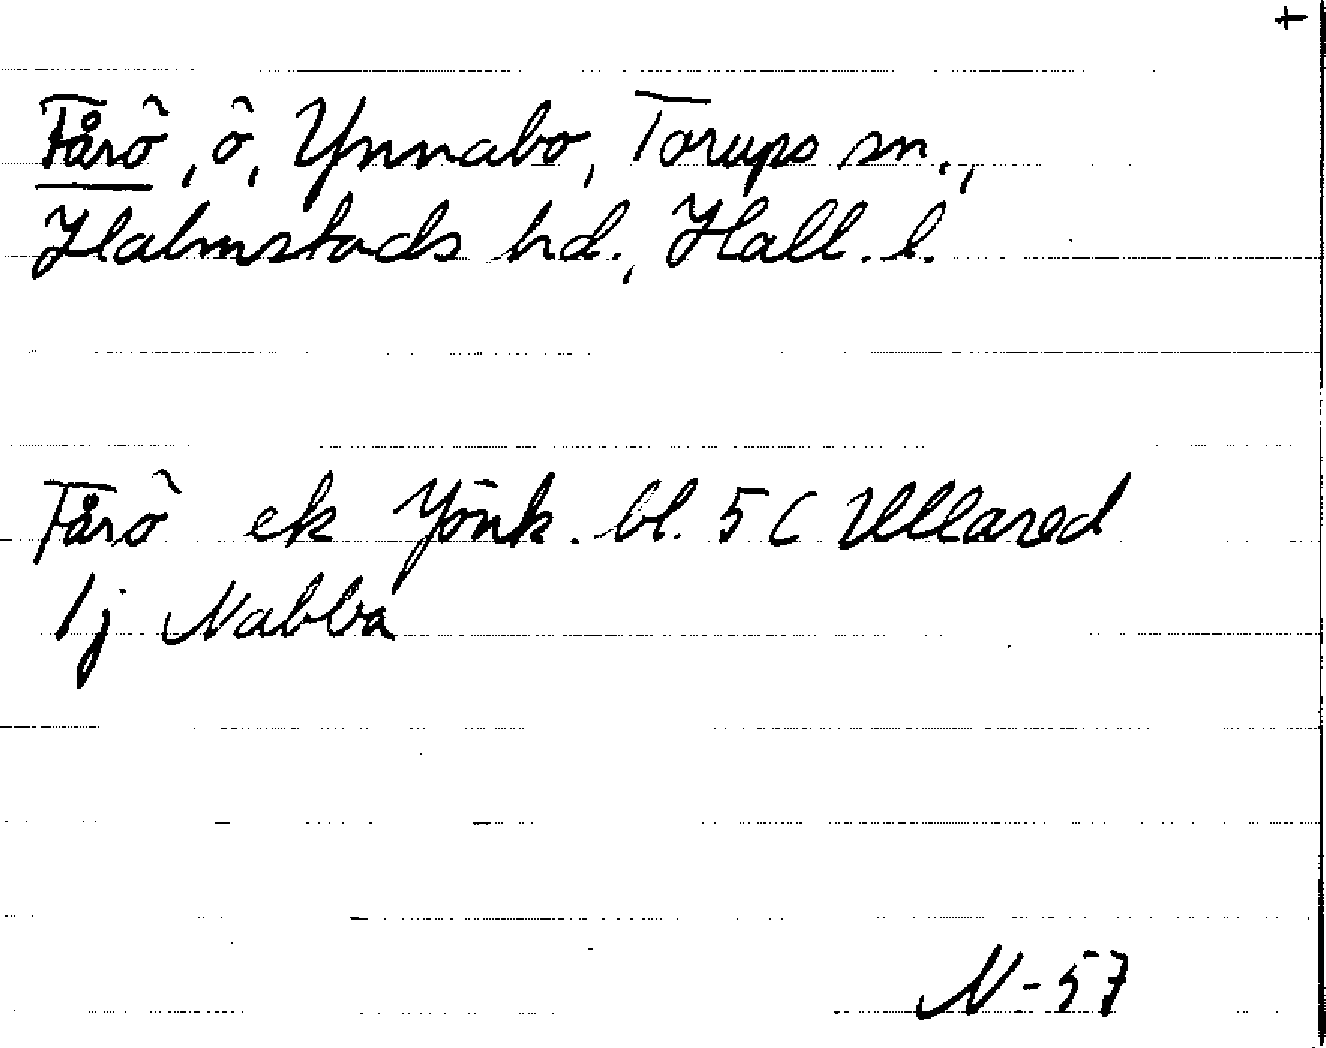 +
Fårö, ö, Ynnabo, Torups sn.,
Halmstads hd., Hall. l.
Fårö ek Jönk. bl. 5 C Ullared
1j Nabba
N-57